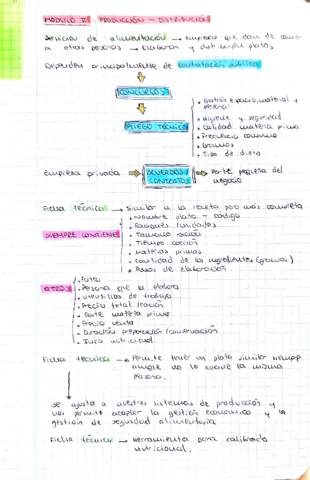 MODULO III: PRODUCCIÓN - DISTRIBUCIÓN
Servicios de alimentación → empresa que dan de comer
a otras personas → elaboran y distribuyen platos.
Dependen principalmente de contratación pública
CONCURSOS
PLIEGO TÉCNICO
• Gestión espacio, material y
personal
• Higiene y seguridad
• Calidad materia prima
• Frecuencia consumo
• Gramos
• Tipo de dieta
Empresa privada
ACUERDOS / CONTRATOS
Parte pequeña del
negocio
Ficha técnica → similar a la receta pero más completa
SIEMPRE CONTIENE
• Nombre plato - código
• Raciones / unidades
• Tamaño ración
• Tiempo cocción
• Materias primas
• Cantidad de los ingredientes (gramos)
• Pasos de elaboración
OTROS
• Foto
• Persona que la elabora
• Utensilios de trabajo
• Precio total / ración
• Coste materia prima
• Precio venta
• Duración preparación / conservación
• Info nutricional.
Ficha técnica → Permite tener un plato similar siempre
aunque no lo cocine la misma
persona.
se ajusta a nuestros sistemas de producción y
nos permite acoplar la gestión económica y la
gestión de seguridad alimentaria
Ficha técnica → Herramienta para calibrado
nutricional.